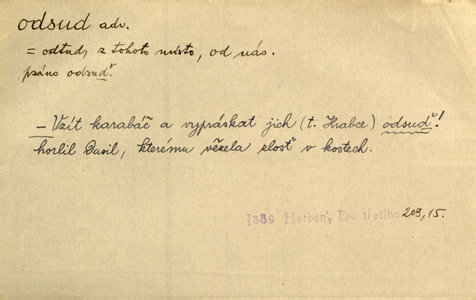 odsud adv.
= odtud, z tohoto místa, od nás.
psáno odsuď.
— Vzít karabáč a vypráskat jich (t. Hrabce) odsuď!
horlil Dusil, kterému vězela zlosť v kostech.
1889 Herben, Do třetího 203, 15.